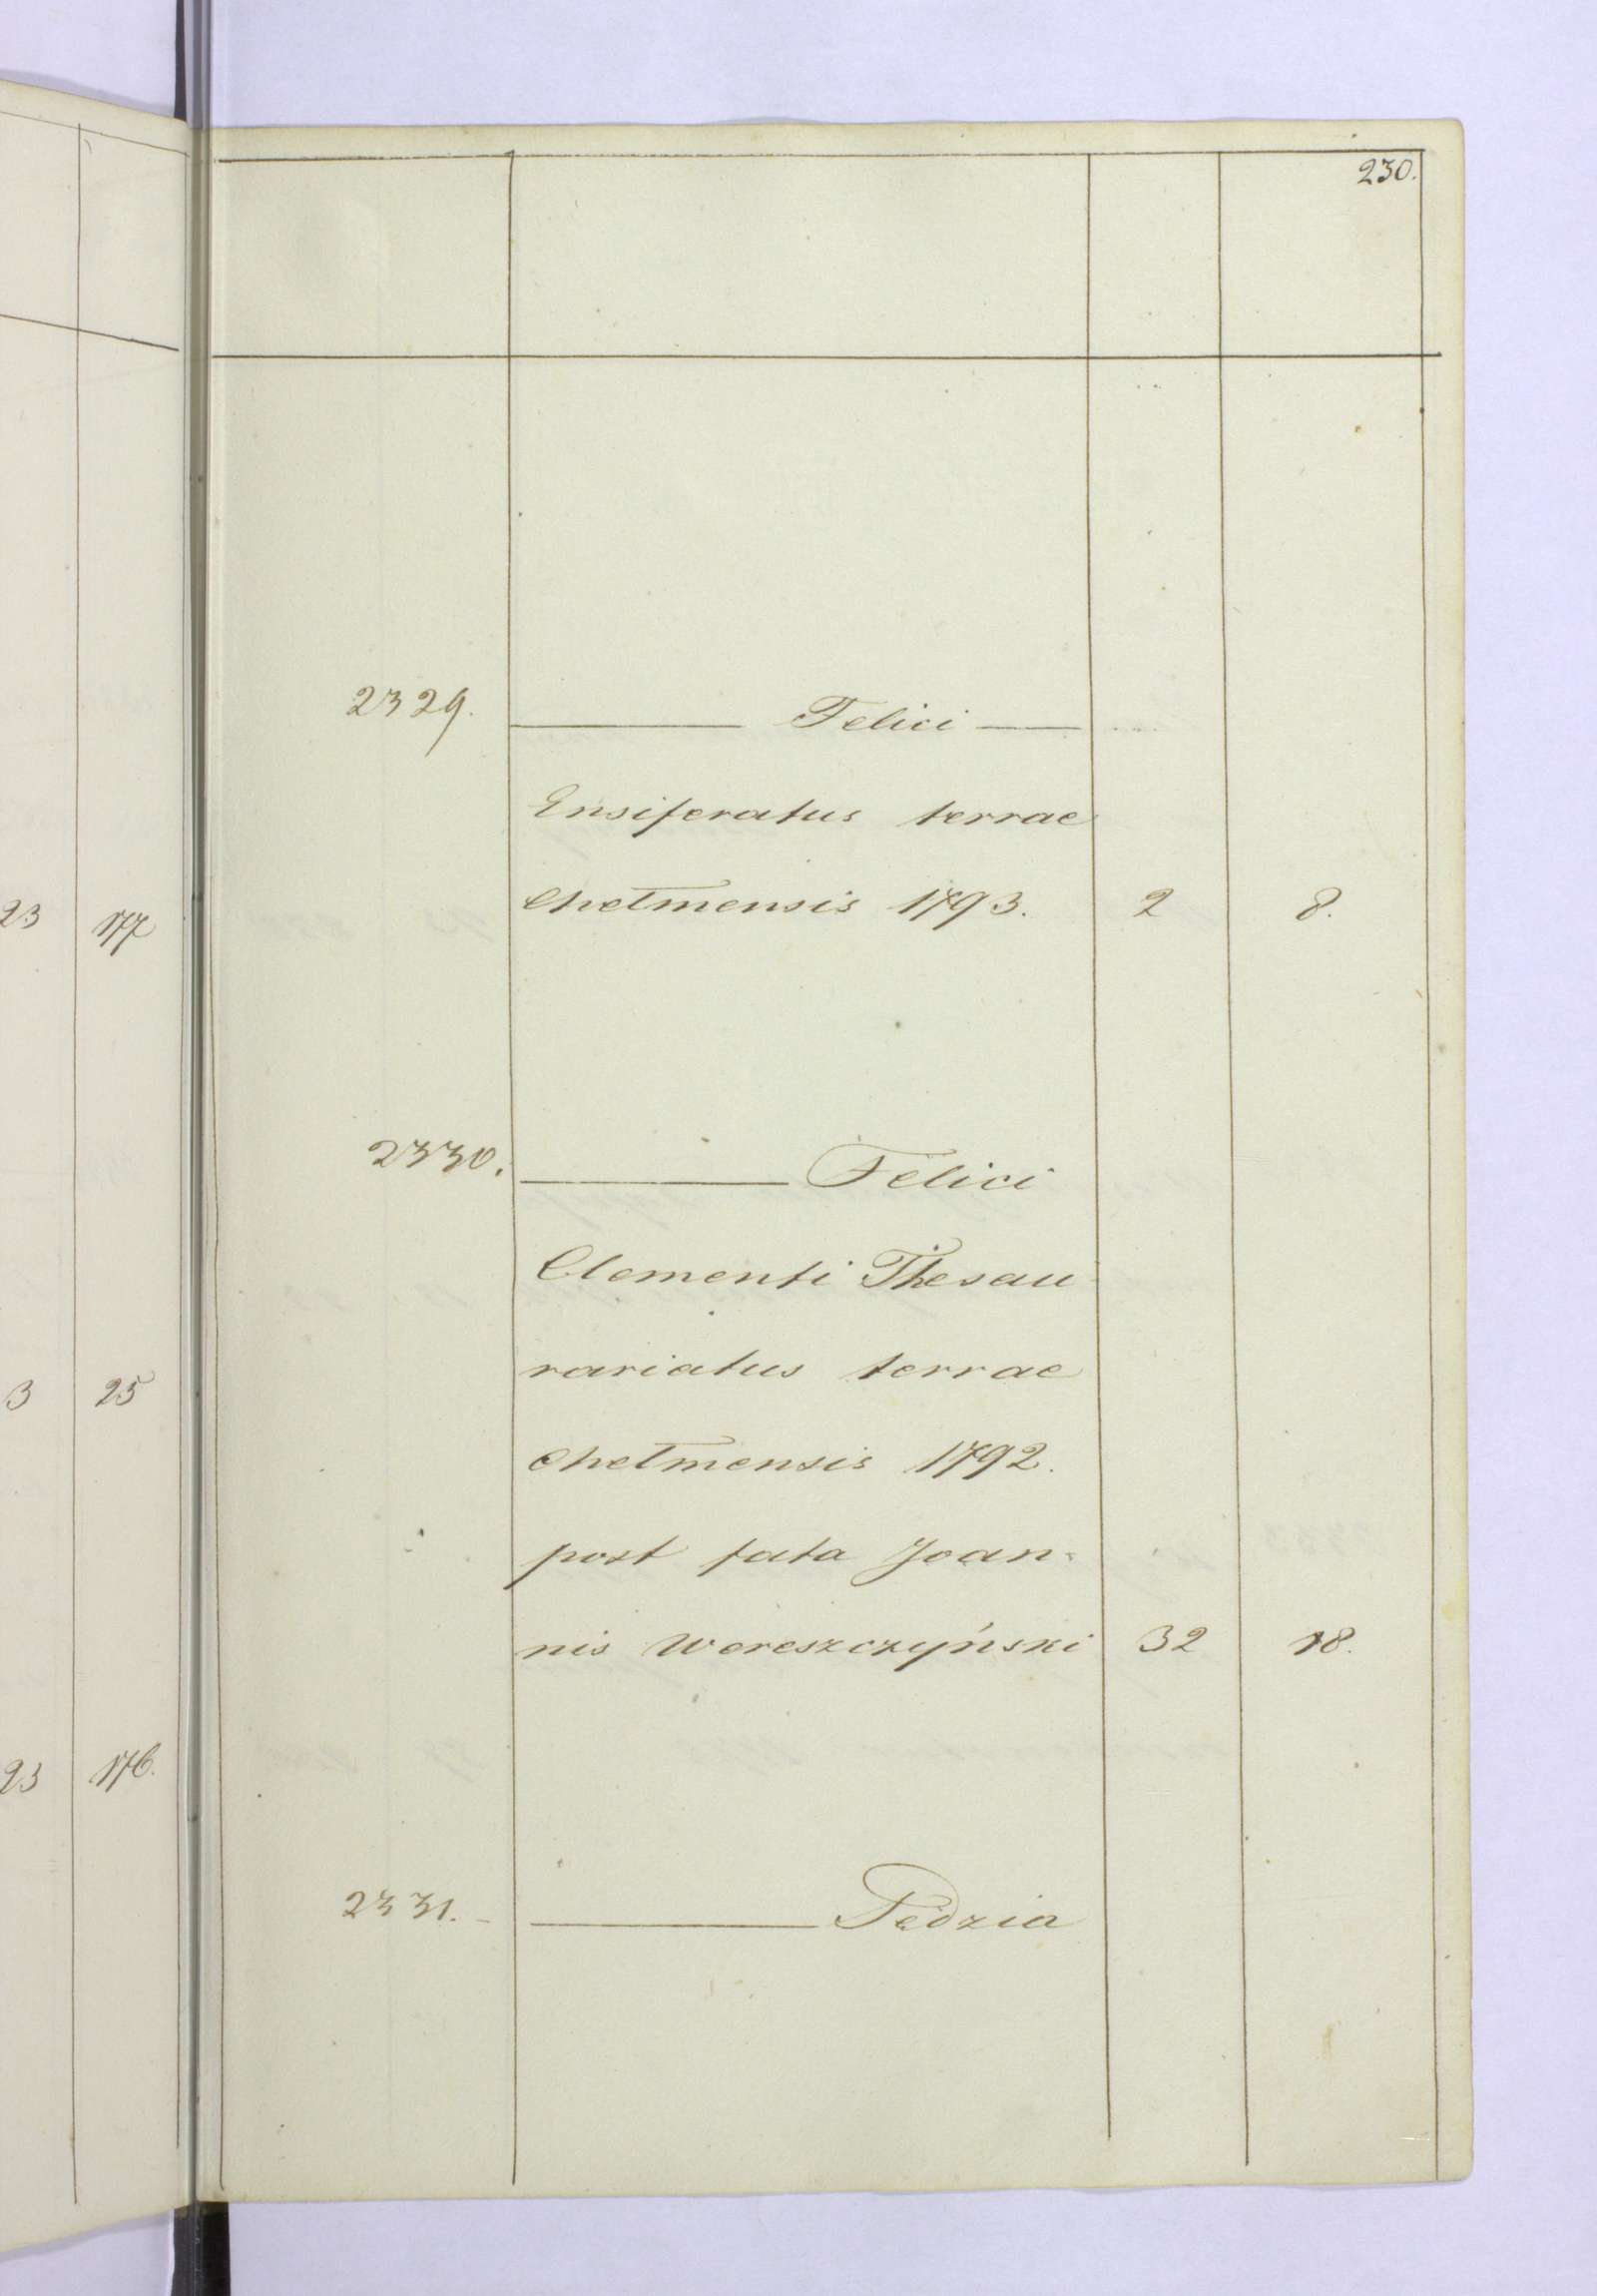 230.
2329. ——— Felici ———
Ensiferatus terrae
Chełmensis 1793. 2 8.
2330. ——— Felici
Clementi Thesau
rariatus terrae
Chełmensis 1792.
post fata Joan-
nis Wereszczyński 32 18.
2331. ——— Fedzia
23 177
3 25
23 176.